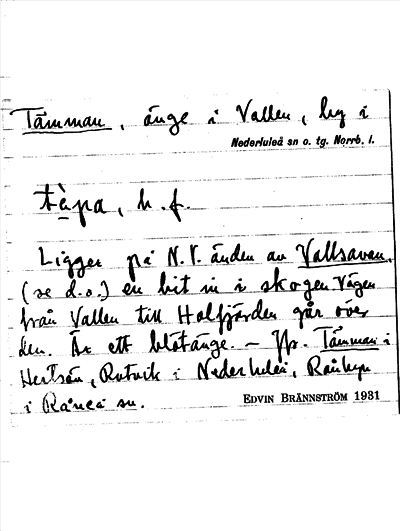 Tåmman, änge i Vallen, by i
Nederluleå sn o. tg. Norrb. l.
tèpa, h. f.
Ligger på N.V. änden av Vallsavan,
(se d.o.) en bit in i skogen. Vägen
från Vallen till Halfjärden går över
den. Är ett blötänge. – Jfr. Tåmman i
Hertsön, Rutvik i Nederluleå, Rånbyn
i Råneå sn.
EDVIN BRÄNNSTRÖM 1931